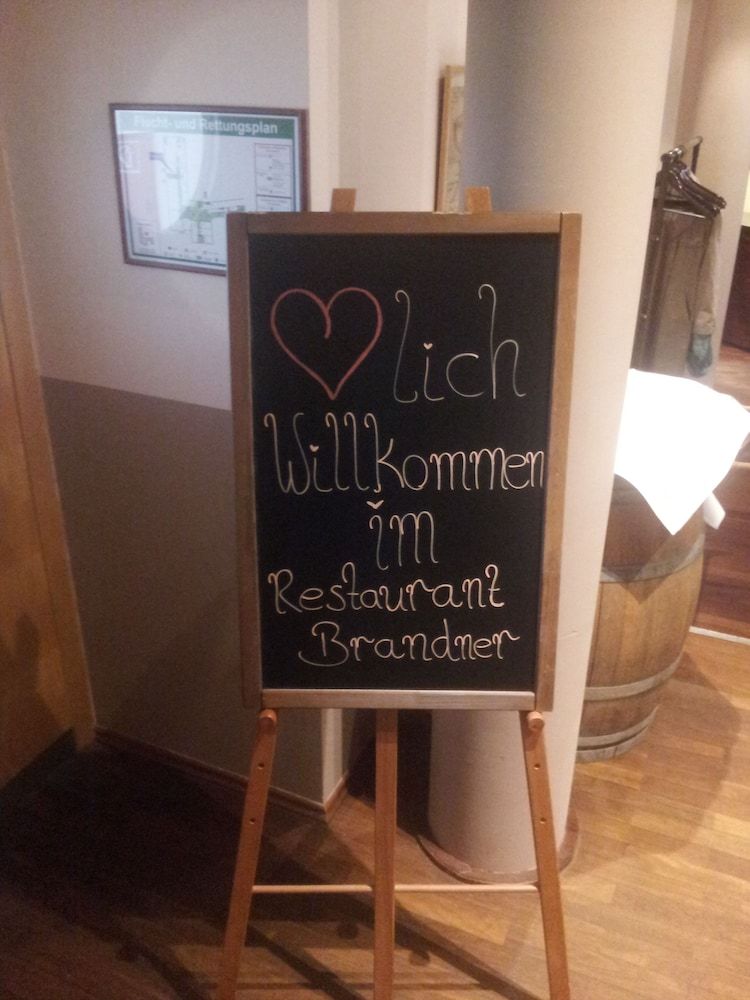 Flucht- und Rettungsplan
lich
Willkommen
im
Restaurant
Brandner